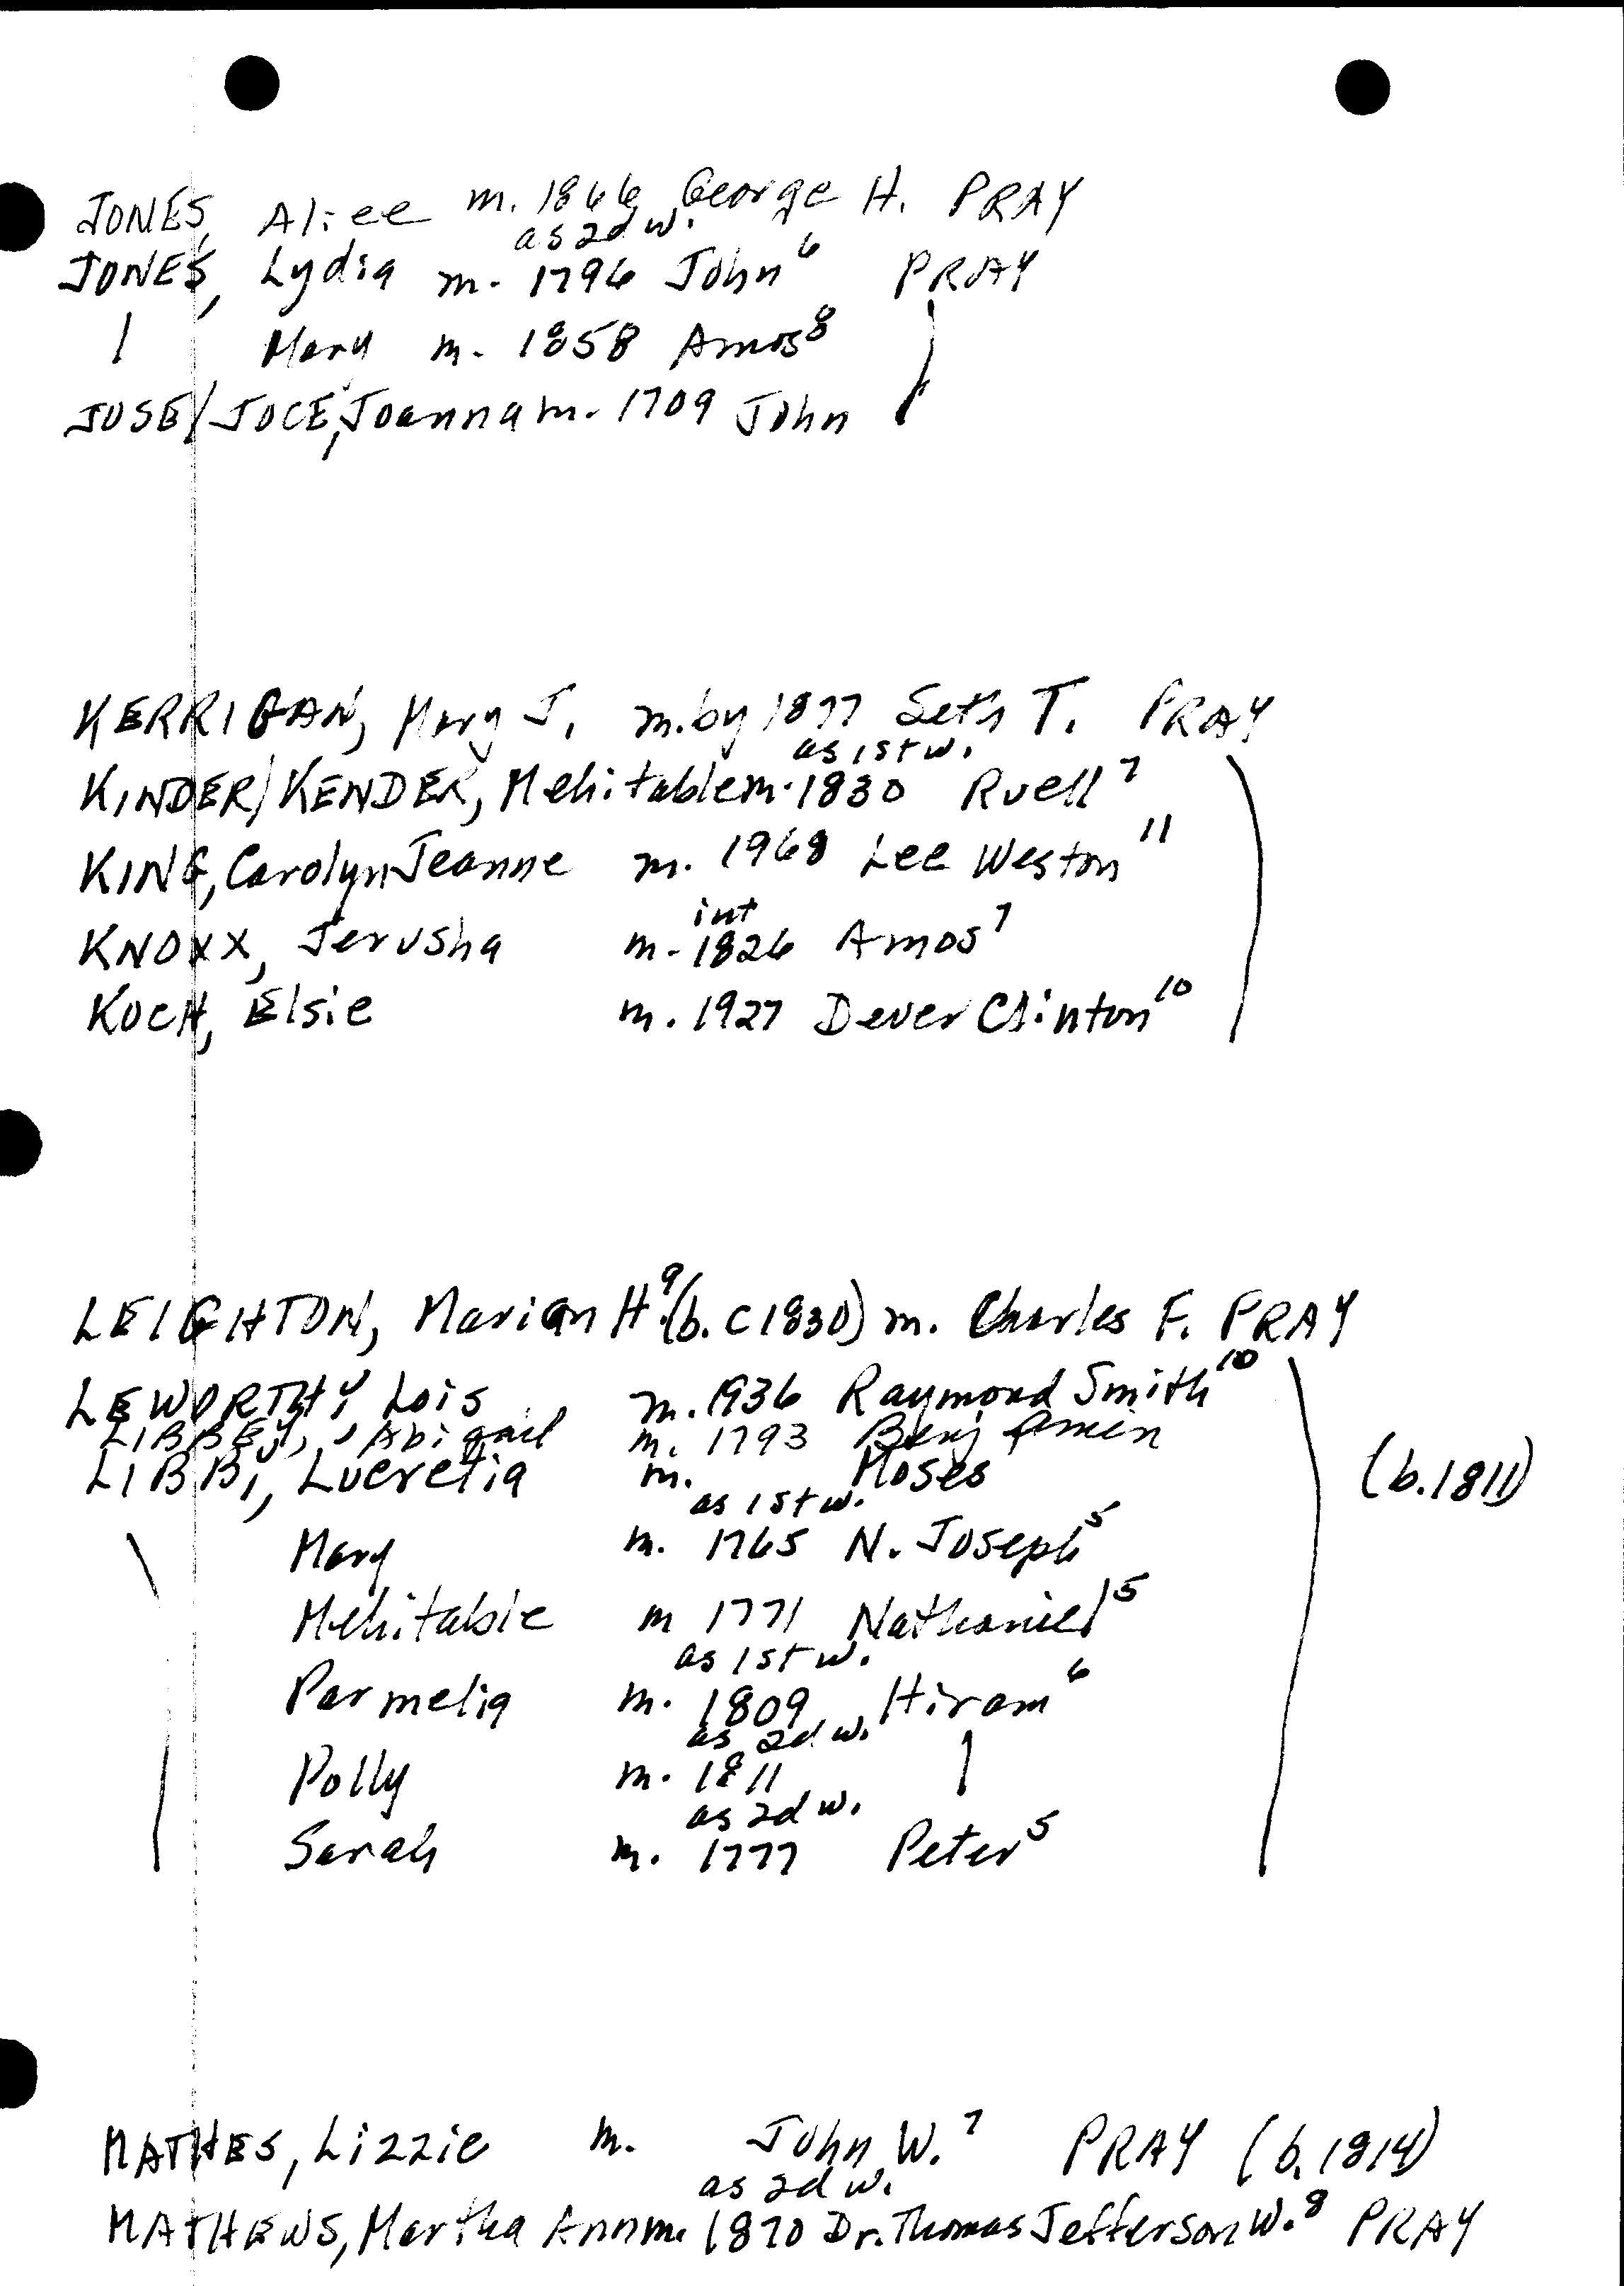 JONES, Alice m. 1866 George H. PRAY
as 2d w.
JONES, Lydia m. 1796 John⁶ PRAY
Mary m. 1858 Amos⁸
JOSE/JOCE, Joanna m. 1709 John
KERRIGAN, Mary J. m. by 1877 Seth T. PRAY
as 1st w.
KINDER/KENDER, Mehitable m. 1830 Ruell⁷
KING, Carolyn Jeanne m. 1968 Lee Weston¹¹
int
KNOXX, Jerusha m. 1826 Amos⁷
KOCH, Elsie m. 1927 Dever Clinton¹⁰
LEIGHTON, Marian H.⁹ (b. c 1830) m. Charles F. PRAY
LEWORTHY, Lois m. 1936 Raymond Smith¹⁰
LIBBEY, Abigail m. 1793 Benjamin
LIBBY, Lucretia m. Moses (b. 1811)
as 1st w.
Mary m. 1765 N. Joseph⁵
Mehitable m 1771 Nathaniel⁵
as 1st w.
Parmelia m. 1809 Hiram⁶
as 2d w.
Polly m. 1811
as 2d w.
Sarah m. 1777 Peter⁵
MATHES, Lizzie m. John W.⁷ PRAY (b. 1814)
as 2d w.
MATHEWS, Martha Ann m. 1870 Dr. Thomas Jefferson W.⁸ PRAY